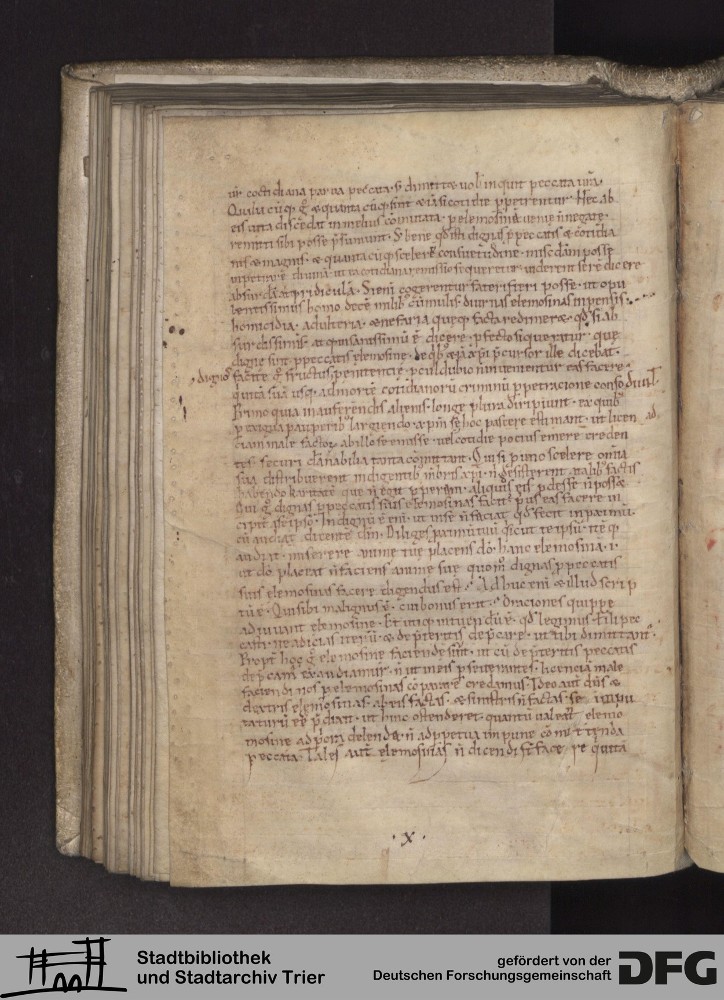 ur cotidiana parua peccata ł dimittet uob inquit peccata ura.
Qualiacūq; & quanta cūq; sint & iā si cotidie ppetrentur. Nec ab
eis uita discedat in melius cōmutata. p elemosinā uenie ñ negate.
remitti sibi posse psumunt. S; bene qd isti dignas p peccatis
nis & magnis & quantacūq; sceleris consuetudine. misc̄dam posse
absurdā & ridiculā. Si enī cogerentur fateri fieri posse. ut opu
lentissimus homo decē milib; cū nūulis diurnas elemosinas inpensis.
homicidia. adulteria. & nefaria queq; facta redimeret. qd si ab
surdissimū atq; insanissimū ē dicere. pfecto si queratur que
digne sint p peccatis elemosine. de qb; & iā xp̄i pcursor ille dicebat.
facite g fructus penitentie. pcul dubio ñ inuenientur eas facere.
qui uitā suā usq; ad mortē cotidianorū criminū ppetracione
Primo quia in auferendis alienis. longe plura diripiunt. ex quib;
pexigua pauperib; largiendo. xp̄m se ad hoc pascere estimant. ut licen
ciam male factor ab illo se emisse. uel cotidie pocius emere creden
tes. securi dānabilia tanta cōmittant. Qui si p uno scelere omia
sua distribuerent indigentib; mēbris xp̄i. ñ desisterent a talib; factis
habendo karitatē que ñ agit pperam. aliquid eis pdesse ñ posset
Qui g dignas p peccatis suis elemosinas facit. prius eas facere in
cipiat a se ipso. Indignū ē enī. ut in se ñ faciat qd facit in proximū.
cū audiat dicente dm̄. Diliges pximū tuū sicut te ipsū. Itē q;
audiat. miserere anime tue placens dō. hanc elemosinā. i.
ut dō placeat ñ faciens anime sue quom dignas p peccatis
suis elemosinas facere dicendus est. Ad hoc enī & illud scrip
tū ē. Qui sibi malignus ē. cui bonus erit. Oraciones quippe
adiuuant elemosine. Et utiq; intuendū ē. qd legimus. Fili pec
casti. ne adicias iterū. & de p̄teritis depcare. ut tibi dimittant.
Propt hoc g elemosine faciende sunt. ut cū de p̄teritis peccatis
depcam exaudiamur. ñ ut in eis pseuerantes. licenciā male
faciendi nos p elemosinas cōparare credamus. Ideo aut dn̄s &
dextris elemosinas ab eis factas. & sinistris ñ factas se inpu
taturū ē p̄dixit. ut hinc ostenderet. quantū ualeant elemo
mosine ad priora delenda. ñ ad ppetua inpune cōmittenda
peccata. Tales aut elemosinas ñ dicendi sunt facere qui uitā
.x.
Stadtbibliothek
und Stadtarchiv Trier
gefördert von der
Deutschen Forschungsgemeinschaft
DFG